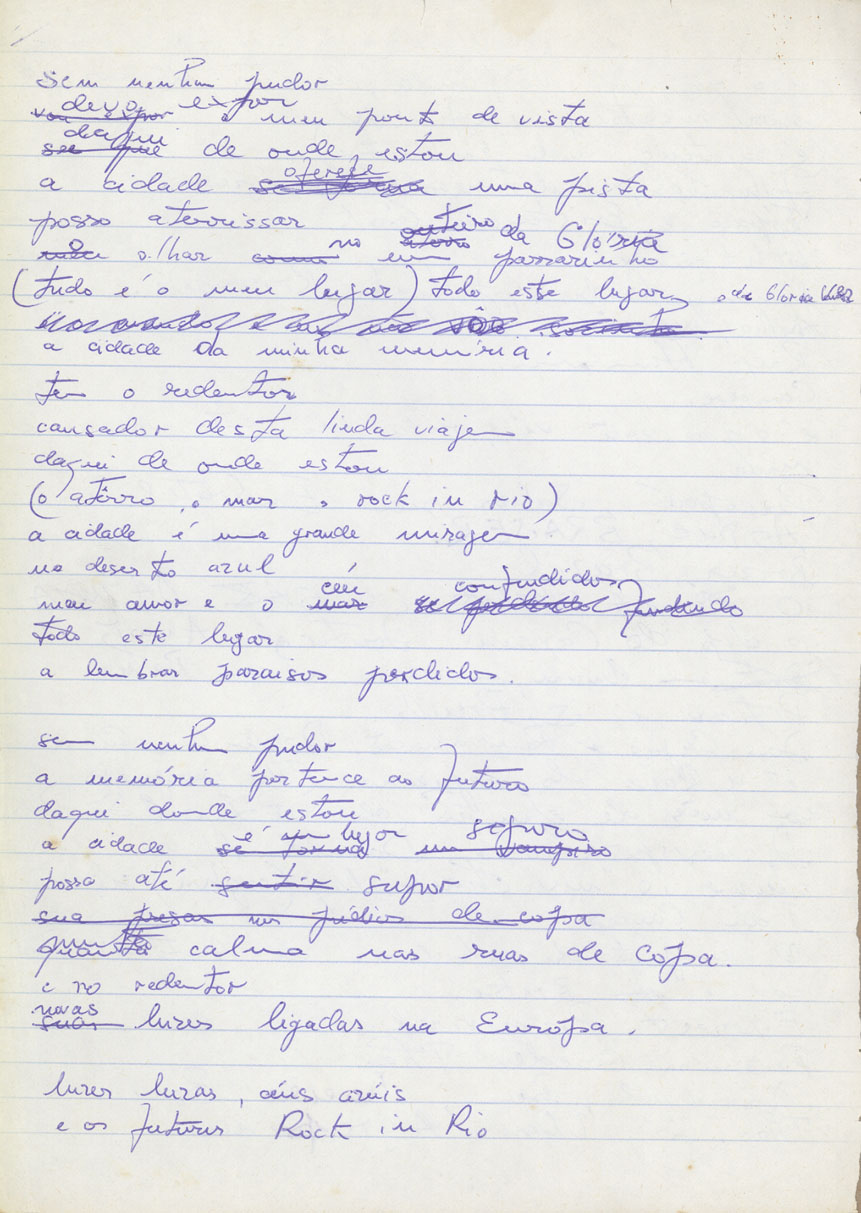 sem nenhum pudor
devo expor
vou expor o meu ponto de vista
daqui
se que de onde estou
oferece
a cidade se torna uma pista
posso aterrissar
outeiro da Glória
no aterro
olhar como em passarinho
(tudo é o meu lugar) todo este lugar
a cidade da minha memória.
tem o redentor
causador desta linda viagem
daqui de onde estou
(o atêrro, o mar, o rock in rio)
a cidade é uma grande miragem
no deserto azul
céu confundidos
meu amor e o mar fundindo
todo este lugar
a lembrar paraisos perdidos.
sem nenhum pudor
a memória pertence ao futuro
daqui donde estou
é um lugar seguro
a cidade se torna um vampiro
posso até sentir supor
sua presas nos prédios de copa
muita
quanta calma nas ruas de Copa.
e no redentor
novas
suas luzes ligadas na Európa.
luzes luzas, céus azúis
e os futuros Rock in Rio